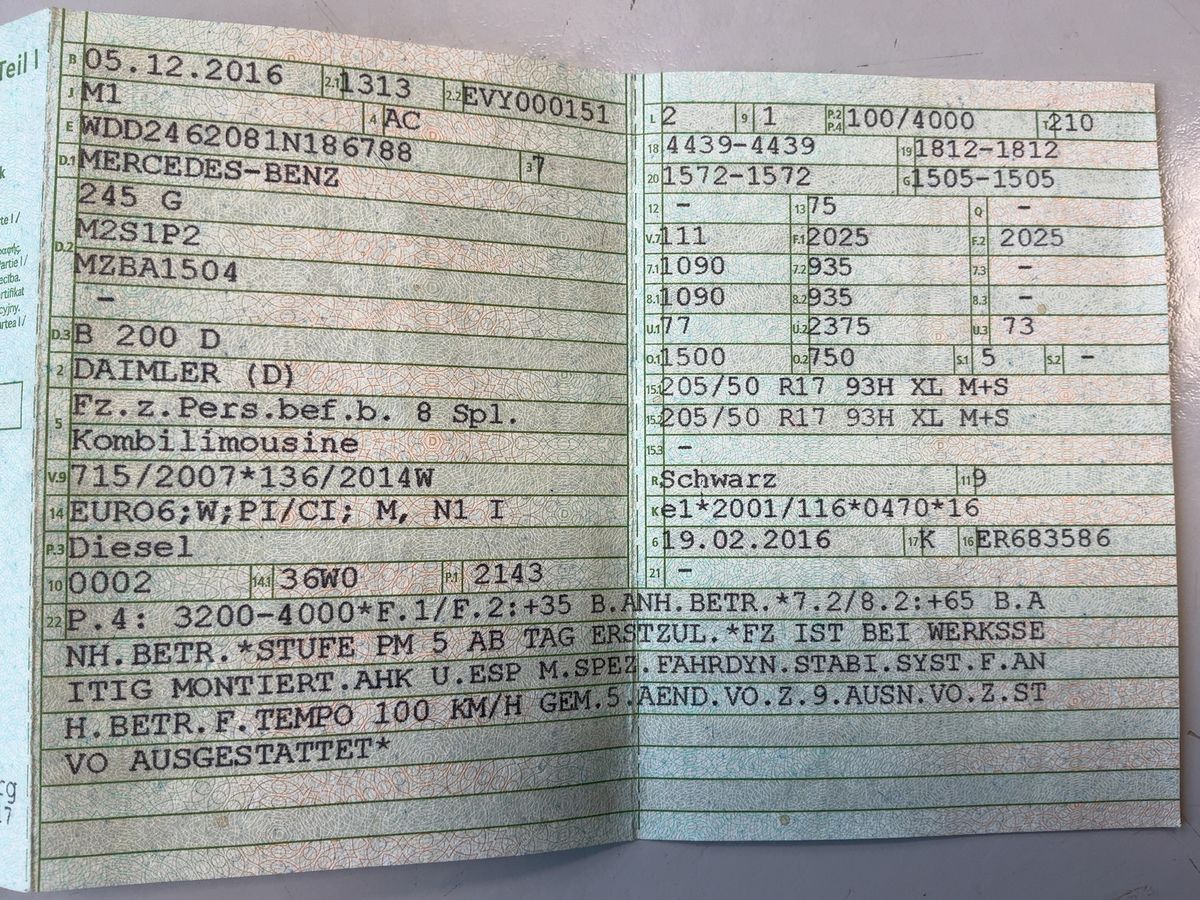 Teil I
B 05.12.2016 2.1 1313 2.2 EVY000151
J M1 4 AC
E WDD2462081N186788
D.1 MERCEDES-BENZ 3 7
245 G
D.2 M2S1P2
MZBA1504
-
D.3 B 200 D
2 DAIMLER (D)
5 Fz.z.Pers.bef.b. 8 Spl.
Kombilimousine
V.9 715/2007*136/2014W
14 EURO6;W;PI/CI; M, N1 I
P.3 Diesel
10 0002 14.1 36W0 P.1 2143
L 2 9 1 P.2 P.4 100/4000 T 210
18 4439-4439 19 1812-1812
20 1572-1572 G 1505-1505
12 - 13 75 Q -
V.7 111 F.1 2025 F.2 2025
7.1 1090 7.2 935 7.3 -
8.1 1090 8.2 935 8.3 -
U.1 77 U.2 2375 U.3 73
O.1 1500 O.2 750 S.1 5 S.2 -
15.1 205/50 R17 93H XL M+S
15.2 205/50 R17 93H XL M+S
15.3 -
R Schwarz 11 9
K e1*2001/116*0470*16
6 19.02.2016 17 K 16 ER683586
21 -
22 P.4: 3200-4000*F.1/F.2:+35 B.ANH.BETR.*7.2/8.2:+65 B.A
NH.BETR.*STUFE PM 5 AB TAG ERSTZUL.*FZ IST BEI WERKSSE
ITIG MONTIERT.AHK U.ESP M.SPEZ.FAHRDYN.STABI.SYST.F.AN
H.BETR.F.TEMPO 100 KM/H GEM.5.AEND.VO.Z.9.AUSN.VO.Z.ST
VO AUSGESTATTET*